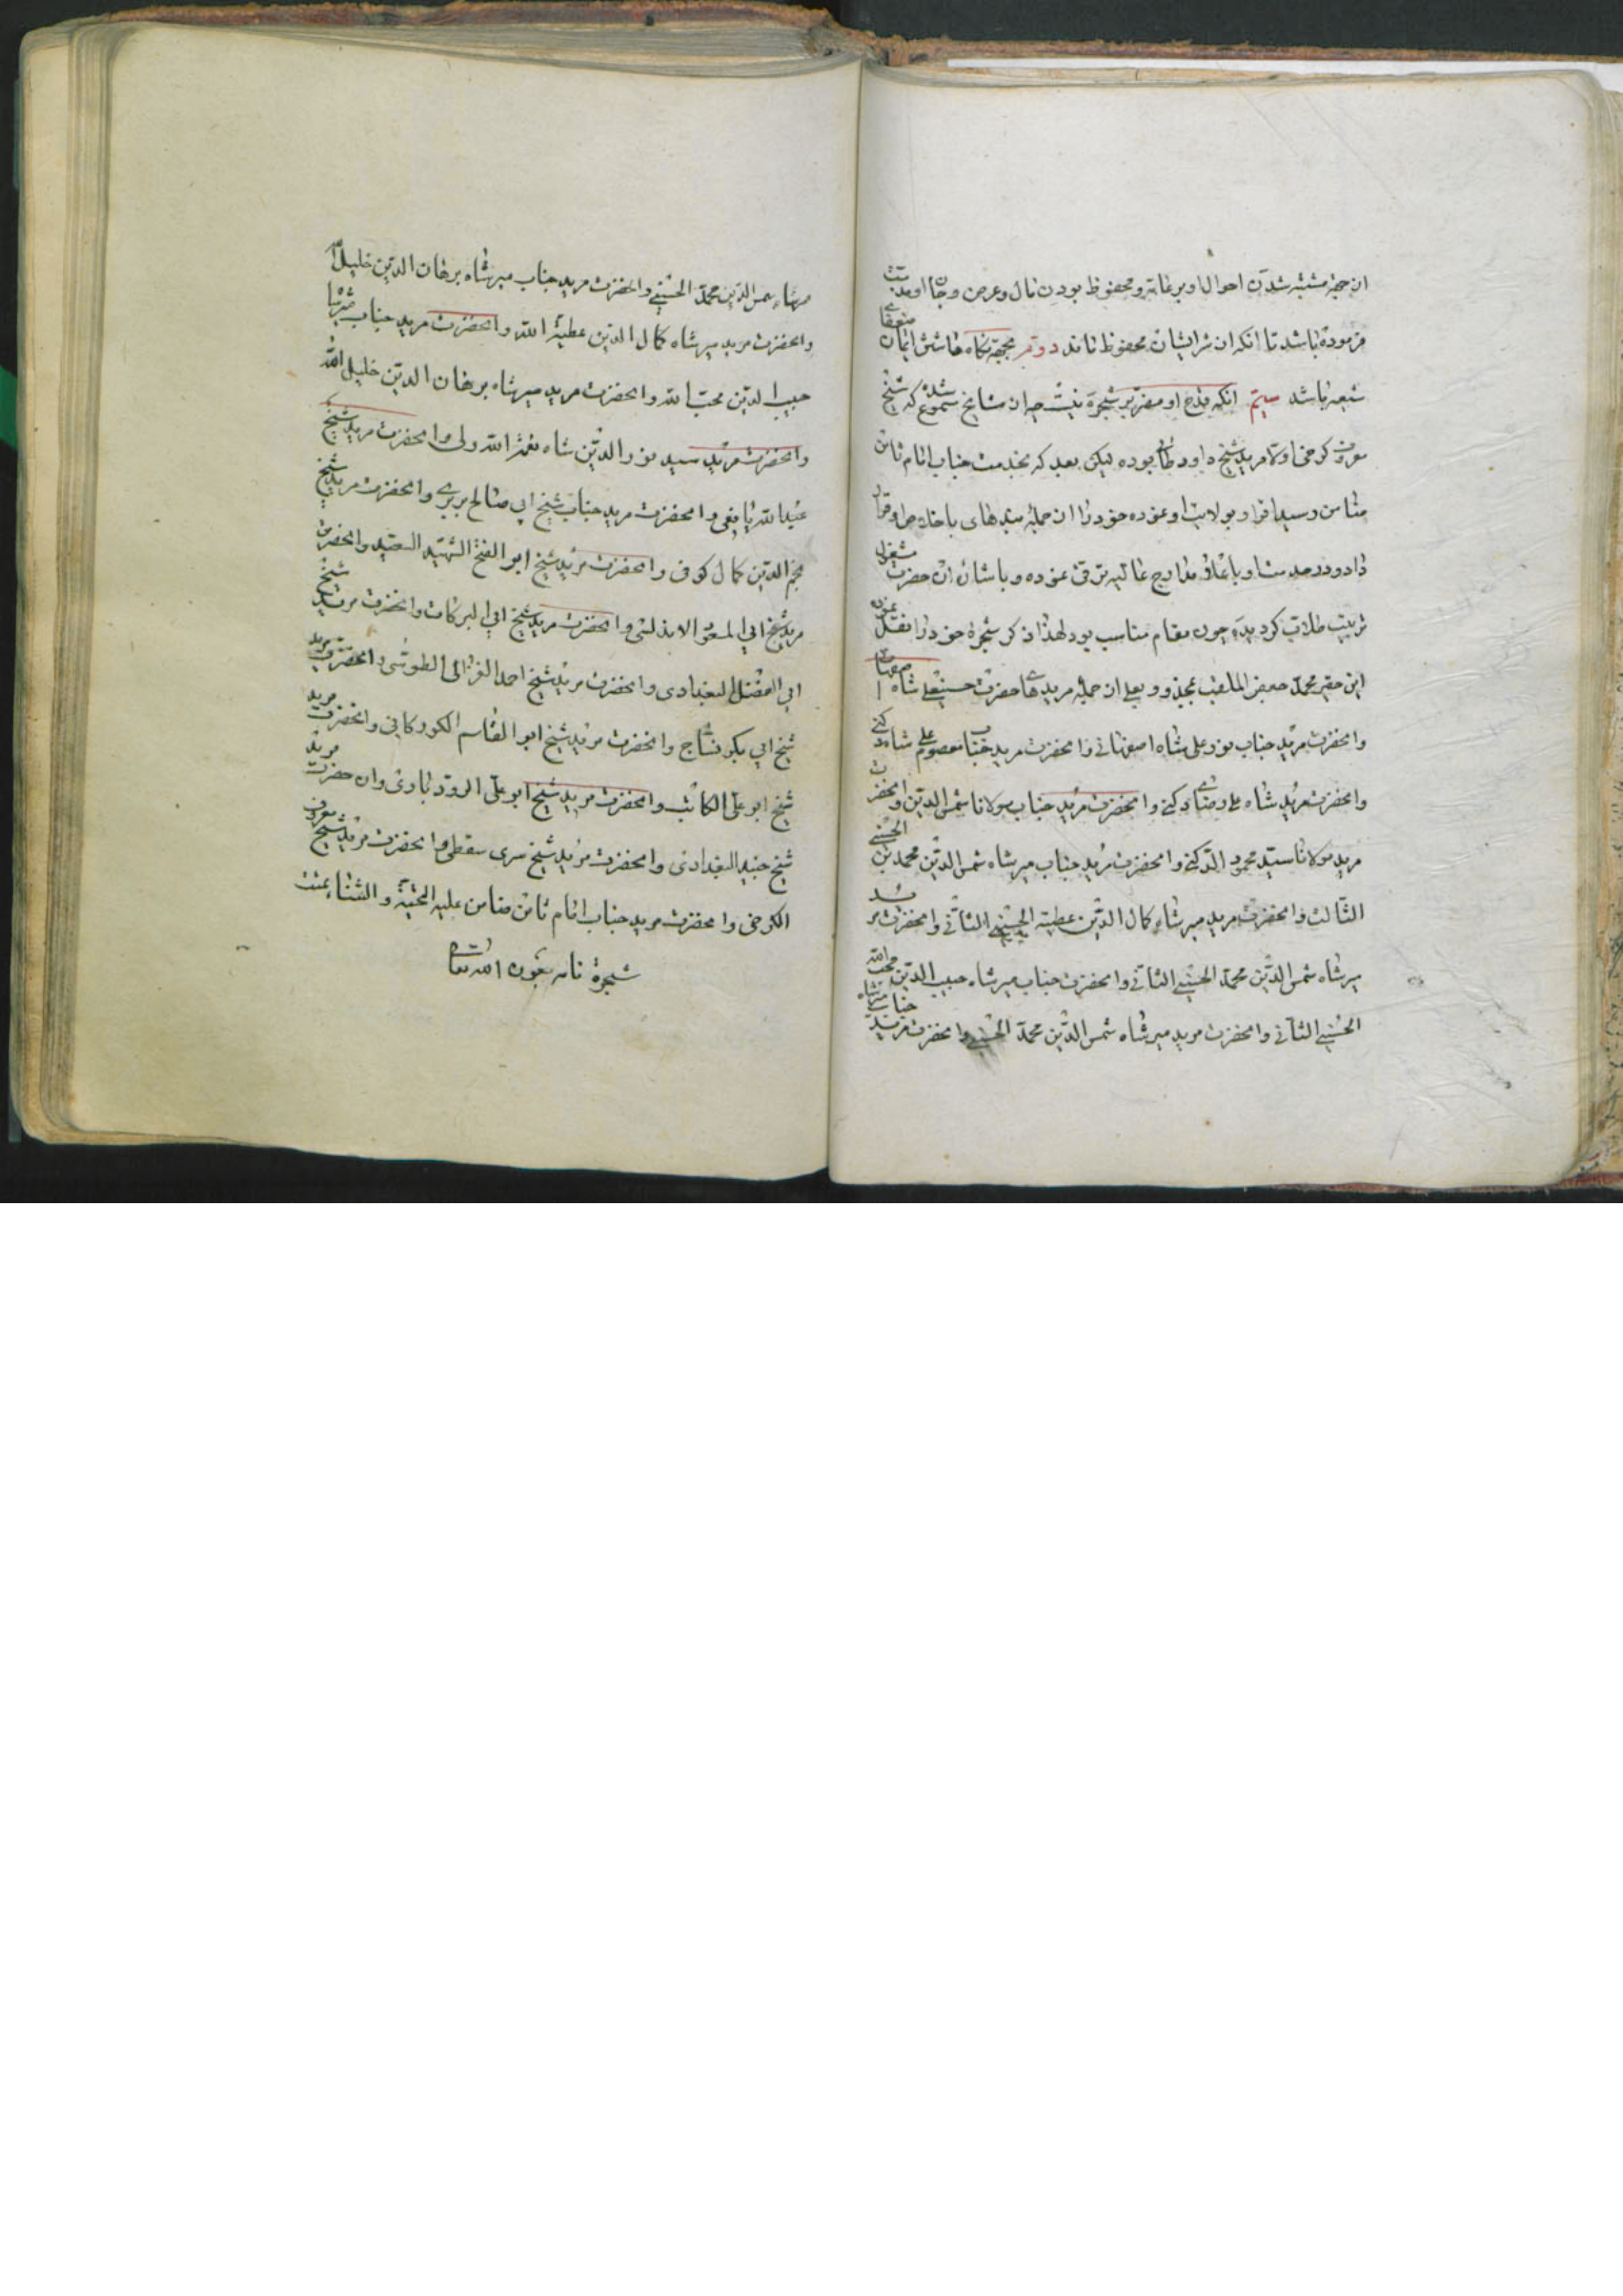 از جهة مشتبه شدن احوال او بر عامه و محفوظ بودن مال و عرض و جان او مذمت
فرموده باشد تا آنکه از شر ایشان محفوظ ماند دویم بجهة نگاه داشتن ایمان ضعفای
شیعه باشد سیم آنکه قدح او مضر بر شجره نیست چه از مشایخ مسموع شده که شیخ
معروف کرخی اولا مرید شیخ داود طائی بوده لیکن بعد که بخدمت جناب امام ثامن
ضامن رسید اقرار بولایت او نموده خود را از جمله بندهای با خلاص او قرار
داد و در صدمت او باعلی مدارج عالیه ترقی نموده و باشان آن حضرت مشغول
تربیت طلاب گردیده چون مقام مناسب بود لهذا ذکر شجره خود را نقل نمود
این حقیر محمد جعفر الملقب بمجذوبعلی از جمله مریدهای حضرت حسینعلی شاه اصفهانی
و انحضرت مرید جناب نورعلی شاه اصفهانی و انحضرت مرید جناب معصوم علی شاه دکنی
و انحضرت مرید شاه علی رضای دکنی و انحضرت مرید جناب مولانا شمس الدین و انحضرت
مرید مولانا سید محمود الدکنی و انحضرت مرید جناب میر شاه شمس الدین محمد بن الحسینی
الثالث و انحضرت مرید میر شاه کمال الدین عطیة الحسینی الثانی و انحضرت مرید
میر شاه شمس الدین محمد الحسینی الثانی و انحضرت جناب میر شاه حبیب الدین محب الله
الحسینی الثانی و انحضرت مرید میر شاه شمس الدین محمد الحسینی و انحضرت مرید جناب میر شاه
میر شاه شمس الدین محمد الحسینی و انحضرت مرید جناب میر شاه برهان الدین خلیل الله
و انحضرت مرید میر شاه کمال الدین عطیة الله و انحضرت مرید جناب میر شاه
حبیب الدین محب الله و انحضرت مرید میر شاه برهان الدین خلیل الله
و انحضرت مرید سید نور الدین شاه نعمة الله ولی و انحضرت مرید شیخ
عبدالله یافعی و انحضرت مرید جناب شیخ ابی صالح بربری و انحضرت مرید شیخ
نجم الدین کمال کوفی و انحضرت مرید شیخ ابو الفتح الشهید السعید و انحضرت
مرید شیخ ابی المعود الاندلسی و انحضرت مرید شیخ ابی البرکات و انحضرت مرید شیخ
ابی الفضل البغدادی و انحضرت مرید شیخ احمد الغزالی الطوسی و انحضرت مرید
شیخ ابی بکر نساج و انحضرت مرید شیخ ابو القاسم الکورکانی و انحضرت مرید
شیخ ابو علی الکاتب و انحضرت مرید شیخ ابو علی الرودباری و ان حضرت مرید
شیخ جنید البغدادی و انحضرت مرید شیخ سری سقطی و انحضرت مرید شیخ معروف
الکرخی و انحضرت مرید جناب امام ثامن ضامن علیه التحیة و الثناء تمت
شجره نامه بعون الله تعالی